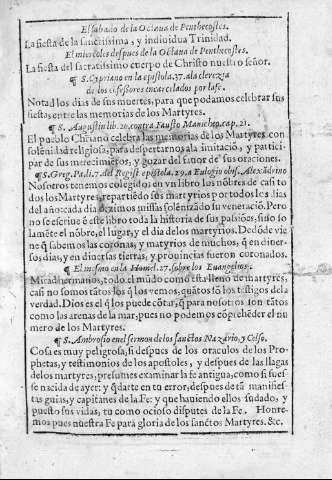 El sabado de la Octaua de Penthecostes.
La fiesta de la sanctissima, y indiuidua Trinidad.
El miercoles despues de la Octaua de Penthecostes.
La fiesta del sacratissimo cuerpo de Christo nuestro señor.
¶ S. Cypriano en la epistola. 37. a la clerezia
de los cõfessores encarcelados por la fe.
Notad los dias de sus muertes, para que podamos celebrar sus
fiestas entre las memorias de los Martyres.
¶ S. Augustin lib. 20. contra Fausto Manicheo. cap. 21.
El pueblo Chr̃iano celebra las memorias de los Martyres con
solẽnidad religiosa, para despertarnos a la imitaciõ, y partici-
par de sus merecimiẽtos, y gozar del fauor de sus oraciones.
¶ S. Greg. Pa. li. 7. del Regist epistola. 29. a Eulogio obis. Alexãdrino
Nosotros tenemos colegidos en vn libro los nõbres de casi to
dos los Martyres, repartiẽdo sus martyrios por todos los dias
del año: cada dia dezimos missas solẽnizãdo su veneraciõ. Pero
no se escriue ẽ este libro toda la historia de sus passiões, sino so
lamẽte el nõbre, el lugar, y el dia de los martyrios. De dõde vie
ne q̃ sabemos las coronas, y matyrios de muchos, q̃ en diuer-
sos dias, y en diuersas tierras, y prouincias fueron coronados.
¶ El mismo en la Homel. 27. sobre los Euangelios.
Mirad hermanos, todo el mũdo como esta lleno de martyres,
casi no somos tãtos los q̃ los vemos, quãtos sõ los testigos de la
verdad. Dios es el q̃ los puede cõtar, q̃ para nosotros son tãtos
como las arenas de la mar, pues no podemos cõprehẽder el nu
mero de los Martyres.
¶ S. Ambrosio en el sermon de los sanctos Nazario, y Celso.
Cosa es muy peligrosa, si despues de los oraculos de los Pro-
phetas, y testimonios de los apostoles, y despues de las llagas
de los martyres, presumes examinar la fe antigua, como si fues
se nacida de ayer: y q̃darte en tu error, despues de tã manifies
tus guias, y capitanes de la Fe: y que hauiendo ellos sudado, y
puesto sus vidas, tu como ocioso disputes de la Fe. Honre-
mos pues nuestra Fe para gloria de los sanctos Martyres. &c.